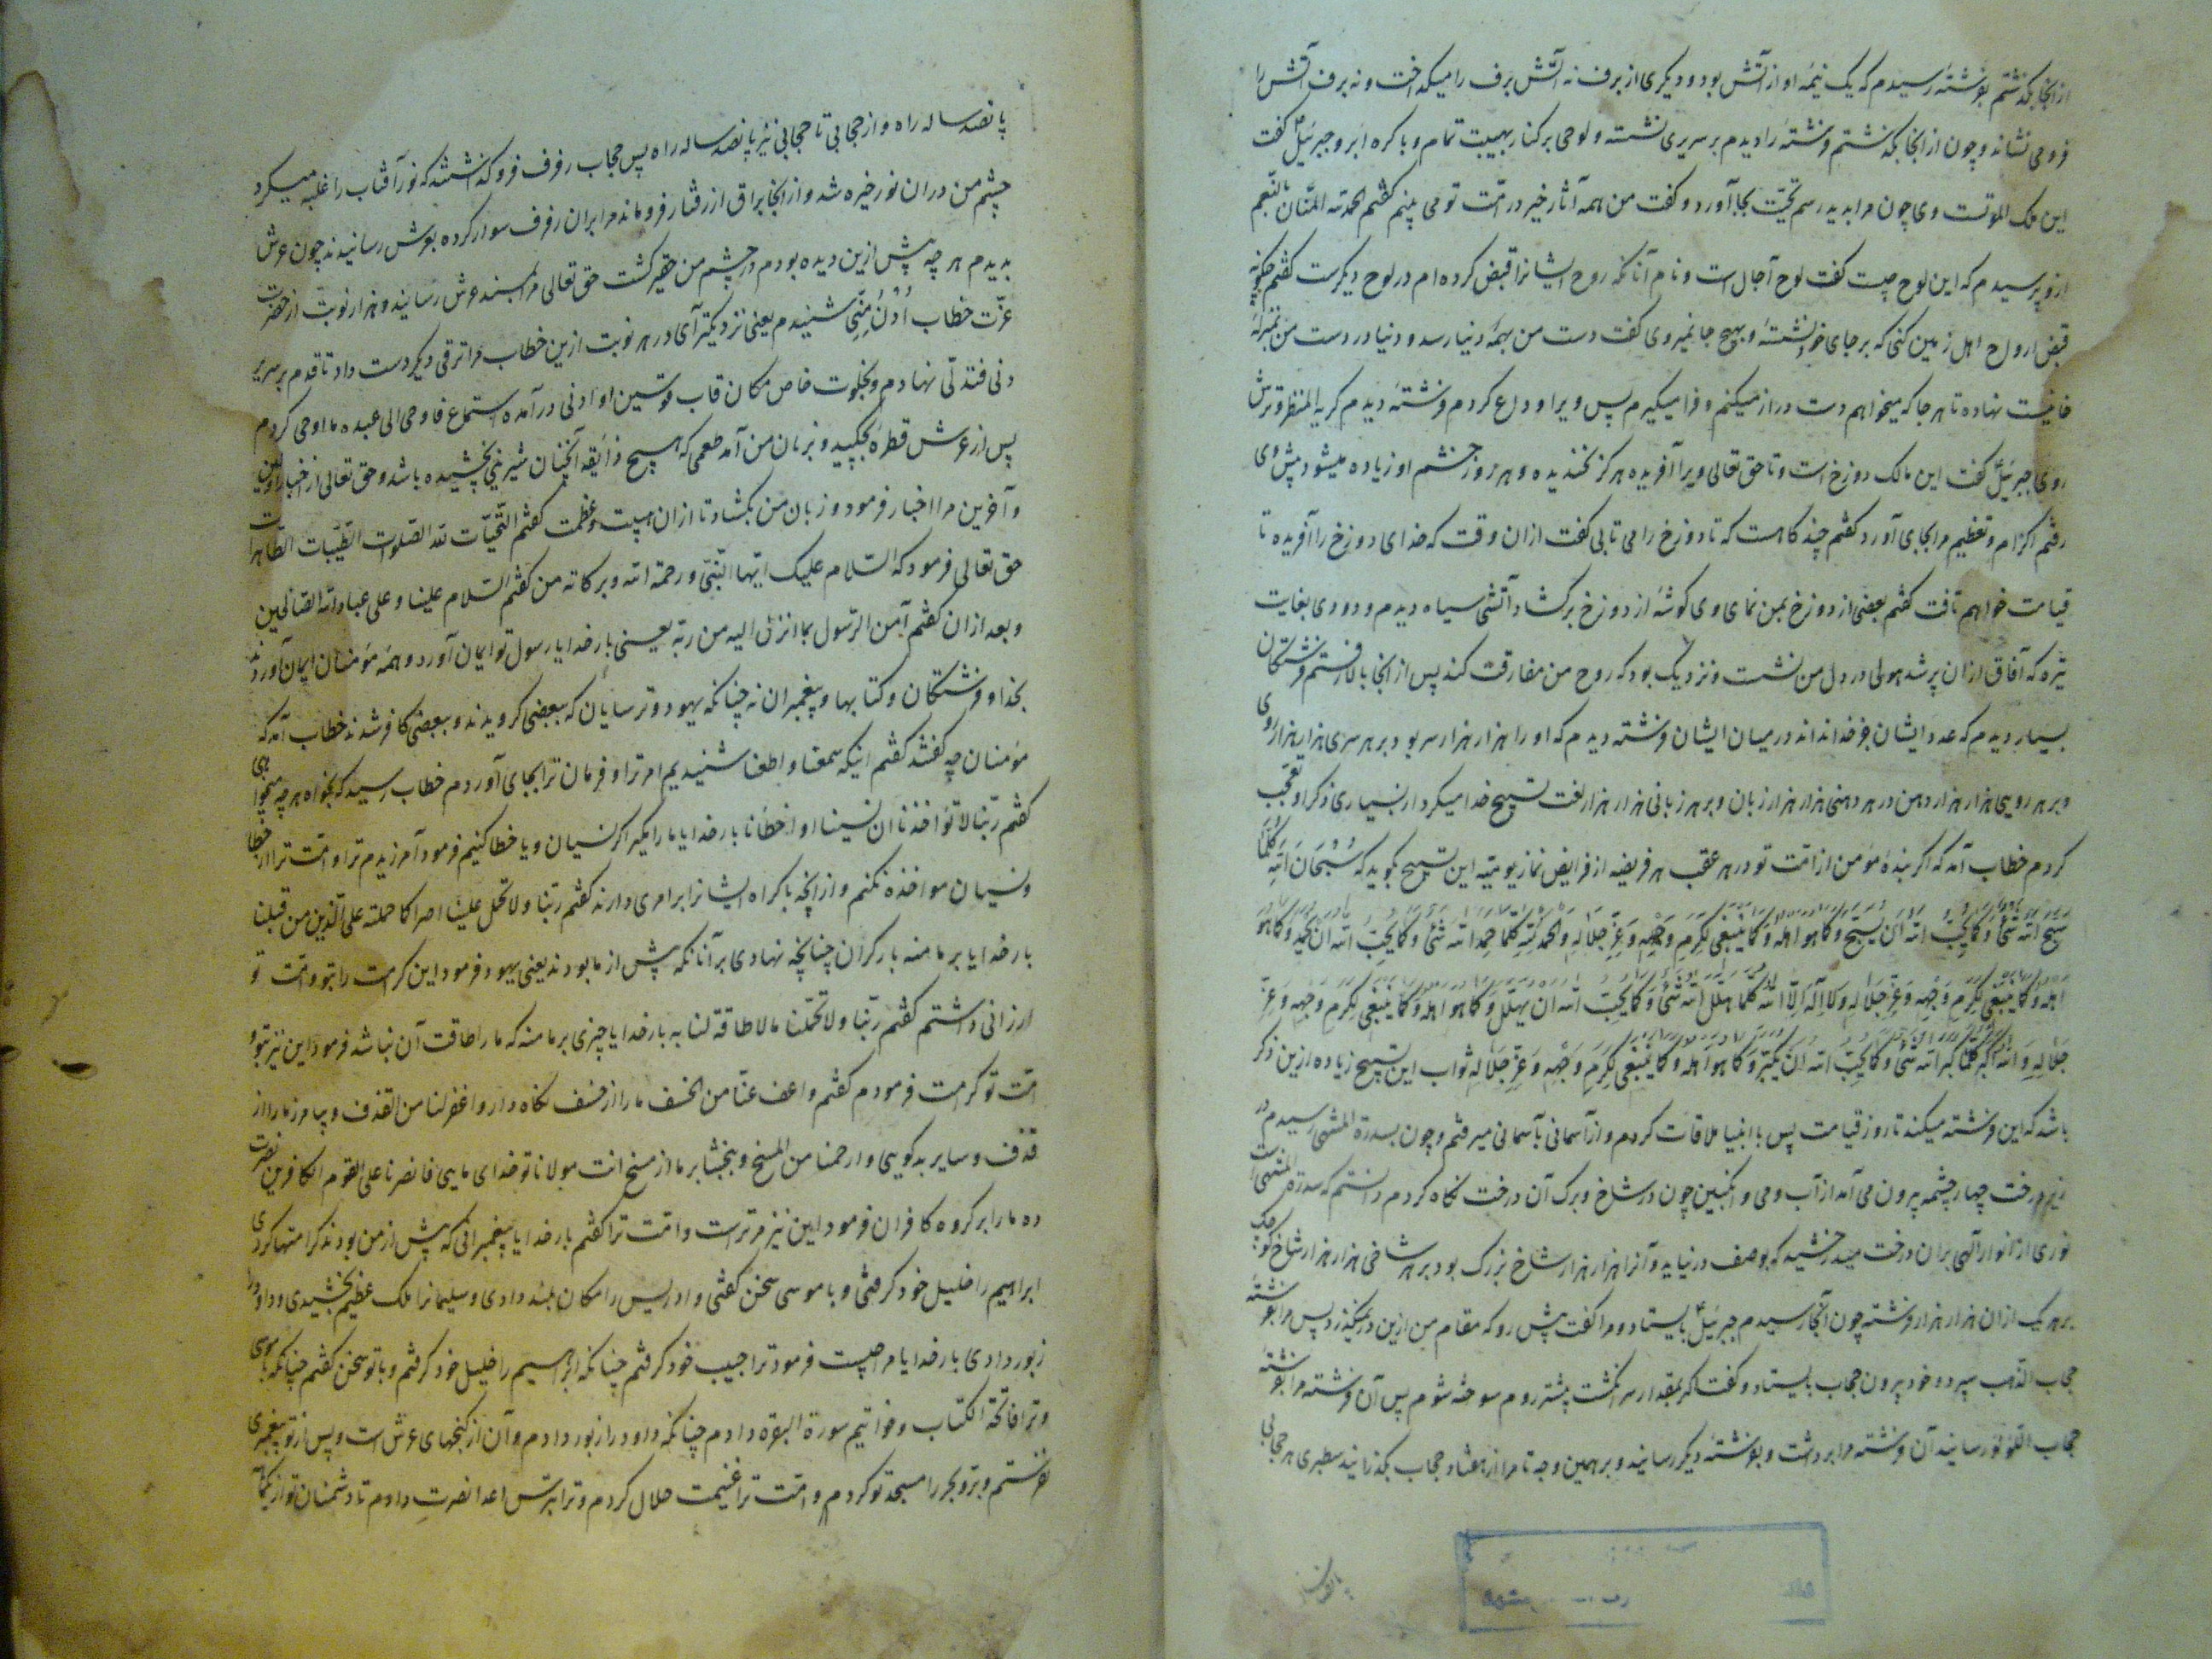 از انجا بگذشتم بفرشتهٔ رسیدم که یک نیمهٔ او از آتش بود و دیگری از برف نه آتش برف را میگداخت و نه برف آتش را
فرو می نشاند و چون از انجا بگذشتم فرشتهٔ را دیدم بر سریری نشسته و لوحی بر کنار بهیبت تمام و با کره ابرو جبرئیل گفت
این ملک الموتست وی چون مرا بدید رسم تحیت بجا آورد و گفت من همه آثار خیر در امت تو می بینم گفتم الحمد لله المنان بالنعم
ازو پرسیدم که این لوح چیست گفت لوح آجال است و نام آنانکه روح ایشانرا قبض کرده ام در لوح دیگرست گفتم چگونه
قبض ارواح اهل زمین کنی که بر جای خود نشستهٔ و بهیچ جا نمیروی گفت دست من بهمهٔ دنیا رسد و دنیا در دست من بمنزلهٔ
نهاده تا هر جا که میخواهم دست دراز میکنم و فرا میگیرم پس ویرا وداع کردم فرشتهٔ دیدم کریه المنظر و ترش
روی جبرئیل گفت این مالک دوزخ است و تا حق تعالی ویرا آفریده هرگز نخندیده و هر روز خشم او زیاده میشود پیش وی
رفتم اکرام و تعظیم مرا بجای آورد گفتم چند گاهست که تا دوزخ را می تابی گفت ازان وقت که خدای دوزخ را آفریده تا
قیامت خواهم تافت گفتم بعضی از دوزخ بمن نمای وی گوشهٔ از دوزخ بر گشاد آتشی سیاه دیدم و دودی بغایت
تیره که آفاق ازان پر شد هولی در دل من نشست و نزدیک بود که روح من مفارقت کند پس از انجا بالا رفتم فرشتگان
بسیار دیدم که عدد ایشان جز خدا نداند در میان ایشان فرشته دیدم که او را هزار هزار سر بود بر هر سری هزار هزار روی
و بر هر رویی هزار هزار دهن در هر دهنی هزار هزار زبان و بر هر زبانی هزار هزار لغت تسبیح خدا میکرد از بسیاری ذکر او تعجب
کردم خطاب آمد که اگر بندهٔ مؤمن از امت تو در هر عقب هر فریضه از فرایض نماز یومیه این تسبیح بگوید که سُبْحَانَ اللّٰهِ کُلَّمَا
سَبَّحَ اللّٰهَ شَیْءٌ وَکَمَا یُحِبُّ اللّٰهُ اَنْ یُسَبَّحَ وَکَمَا هُوَ اَهْلُهُ وَکَمَا یَنْبَغِی لِکَرَمِ وَجْهِهِ وَعِزِّ جَلَالِهِ وَالْحَمْدُ لِلّٰهِ کُلَّمَا حَمِدَ اللّٰهَ شَیْءٌ وَکَمَا یُحِبُّ اللّٰهُ اَنْ یُحْمَدَ وَکَمَا هُوَ
اَهْلُهُ وَکَمَا یَنْبَغِی لِکَرَمِ وَجْهِهِ وَعِزِّ جَلَالِهِ وَلَا اِلٰهَ اِلَّا اللّٰهُ کُلَّمَا هَلَّلَ اللّٰهَ شَیْءٌ وَکَمَا یُحِبُّ اللّٰهُ اَنْ یُهَلَّلَ وَکَمَا هُوَ اَهْلُهُ وَکَمَا یَنْبَغِی لِکَرَمِ وَجْهِهِ وَعِزِّ
جَلَالِهِ وَاللّٰهُ اَکْبَرُ کُلَّمَا کَبَّرَ اللّٰهَ شَیْءٌ وَکَمَا یُحِبُّ اللّٰهُ اَنْ یُکَبَّرَ وَکَمَا هُوَ اَهْلُهُ وَکَمَا یَنْبَغِی لِکَرَمِ وَجْهِهِ وَعِزِّ جَلَالِهِ ثواب این تسبیح زیاده ازین ذکر
باشد که این فرشته میکند تا روز قیامت پس با انبیا ملاقات کردم و از آسمانی بآسمانی میرفتم و چون بسدرة المنتهی رسیدم در
درخت چهار چشمه بیرون می آمد از آب و می و انگبین چون در شاخ و برک آن درخت نگاه کردم دانستم که سدرة المنتهی است
نوری از انوار الهی بران درخت میدرخشید که بوصف در نیاید و آنرا هزار هزار شاخ بزرک بود بر هر شاخی هزار هزار شاخ کوچک
بر هر یک ازان هزار هزار فرشته چون آنجا رسیدم جبرئیل بایستاد و مرا گفت پیش رو که مقام من ازین در نمیگذرد پس مرا بفرشتهٔ
حجاب الذهب سپرد و خود بیرون حجاب بایستاد و گفت اگر بمقدار سر انگشت پیشتر روم سوخته شوم پس آن فرشته مرا بفرشتهٔ
حجاب اللؤلؤ رسانید آن فرشته مرا برداشت و بفرشتهٔ دیگر رسانید و بر همین وجه تا مرا از هفتاد حجاب بگذرانید سطبری هر حجابی
پانصد ساله راه و از حجابی تا حجابی نیز پانصد ساله راه پس حجاب رفرف فرو گذاشتند که نور آفتاب را غلبه میکرد
چشم من دران نور خیره شد و از انجا براق از رفتار فرو ماند مرا بران رفرف سوار کرده بعرش رسانیدند چون عرش
بدیدم هر چه پیش ازین دیده بودم در چشم من حقیر گشت حق تعالی مرا بسند عرش رسانید و هزار نوبت از حضرت
عزّت خطاب اُدْنُ مِنّی شنیدم یعنی نزدیکتر آی در هر نوبت ازین خطاب مرا ترقی دیگر دست داد تا قدم بر سریر
دنی فتدلی نهادم و بخلوت خاص مکان قاب قوسین او ادنی در آمده استماع فاوحی الی عبده ما اوحی کردم
پس از عرش قطرهٔ بچکید و بزبان من آمد طعمی که هیچ ذایقه آنچنان شیرینی نچشیده باشد و حق تعالی از اخبار اولین
و آخرین مرا اخبار فرمود و زبان من بگشاد تا ازان هیبت و عظمت گفتم التحیات لله الصلوات الطیبات الطاهرات
حق تعالی فرمود که السلام علیک ایها النبی و رحمة الله و برکاته من گفتم السلام علینا و علی عباد الله الصالحین
و بعد ازان گفتم آمن الرسول بما انزل الیه من ربه یعنی بار خدایا رسول تو ایمان آورد و همه مؤمنان ایمان آوردند
بخدا و فرشتگان و کتابها و پیغمبران نه چنانکه یهود و ترسایان که ببعضی گرویدند و ببعضی کافر شدند خطاب آمد که
مؤمنان چه گفتند گفتم اینکه سمعنا و اطعنا شنیدیم امر ترا و فرمان ترا بجای آوردم خطاب رسید که بخواه هر چه میخواهی
گفتم ربّنا لا تؤاخذنا ان نسینا او اخطأنا بار خدایا ما را مگیر اگر نسیان و یا خطا کنیم فرمود آمرزیدم ترا و امت ترا از خطا
و نسیان مواخذه نکنم و از آنچه باکراه ایشانرا بر امری دارند گفتم ربنا و لا تحمل علینا اصرا کما حملته علی الذین من قبلنا
بار خدایا بر ما منه بار گران چنانچه نهادی بر آنانکه پیش از ما بودند یعنی یهود فرمود این کرمت را بتو و امت تو
ارزانی داشتم گفتم ربنا و لا تحملنا ما لا طاقة لنا به بار خدایا چیزی بر ما منه که ما را طاقت آن نباشد فرمود این نیز بتو و
امت تو کرمت فرمودم گفتم و اعف عنا من الخسف ما را از خسف نگاه دار و اغفر لنا من القذف و بیامرز ما را از
قذف و سایر بدگویی و ارحمنا من المسخ و ببخشا بر ما از مسخ انت مولانا تو خدای مایی فانصرنا علی القوم الکافرین نصرت
ده ما را بر گروه کافران فرمود این نیز مر تراست و امت ترا گفتم بار خدایا پیغمبرانی که پیش از من بودند کرامتها کردی
ابراهیم را خلیل خود گرفتی و با موسی سخن گفتی و ادریس را مکان بلند دادی و سلیمانرا ملک عظیم بخشیدی و داود را
زبور دادی بار خدایا مرا چیست فرمود ترا حبیب خود گرفتم چنانکه ابراهیم را خلیل خود گرفتم و با تو سخن گفتم چنانکه با موسی
و ترا فاتحة الکتاب و خواتیم سورة البقره دادم چنانکه داود را زبور دادم و آن از گنجهای عرش است و پس از تو پیغمبری
نفرستم و بر و بحر را مسجد تو کردم و امت ترا غنیمت حلال کردم و ترا بترس اعدا نصرت دادم تا دشمنان تو از یکماه